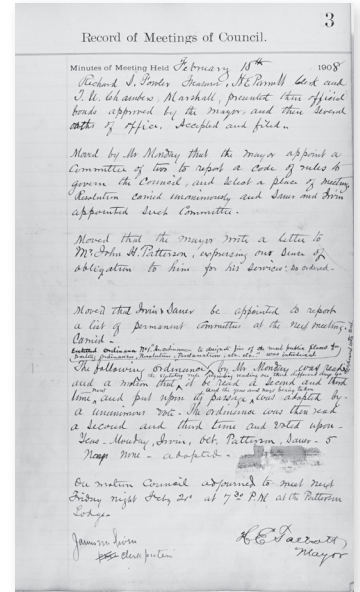 3
Record of Meetings of Council.
Minutes of Meeting Held February 18th 1908
Richard I. Powler Treasurer, H E Parrott Clerk and
T. U. Chambers, Marshall, presented their official
bonds approved by the mayor, and their several
oaths of office. Accepted and filed.
Moved by Mr Monday that the mayor appoint a
Committee of two to report a code of rules to
govern the Council, and select a place of meeting
Resolution carried unanimously and Sauer and Irvin
appointed such Committee.
Moved that the mayor write a letter to
Mr. John H. Patterson, expressing our sense of
obligation to him for his services. So ordered.
Moved that Irvin & Sauer be appointed to report
a list of permanent committees at the next meeting.
Carried.
Entitled Ordinance No 1. "An ordinance to designate five of the most public places for
Posting Ordinances, Resolution, Proclamations, etc. etc." was introduced
The following ordinance by Mr. Monday, was read
and a motion that it be read a second and third
and the yeas and nays being taken
time and put upon its passage, was adopted by
a unanimous vote. The ordinance was then read
a second and third time and voted upon.
Yeas - Monday, Irvin, Patterson, Sauer - 5
Nays none - adopted -
On motion Council adjourned to meet next
Friday night Feby at 7 30 P.M. at the Patterson
Lodge.
James M Irvin
clerk protem
H. E. Talbott
Mayor